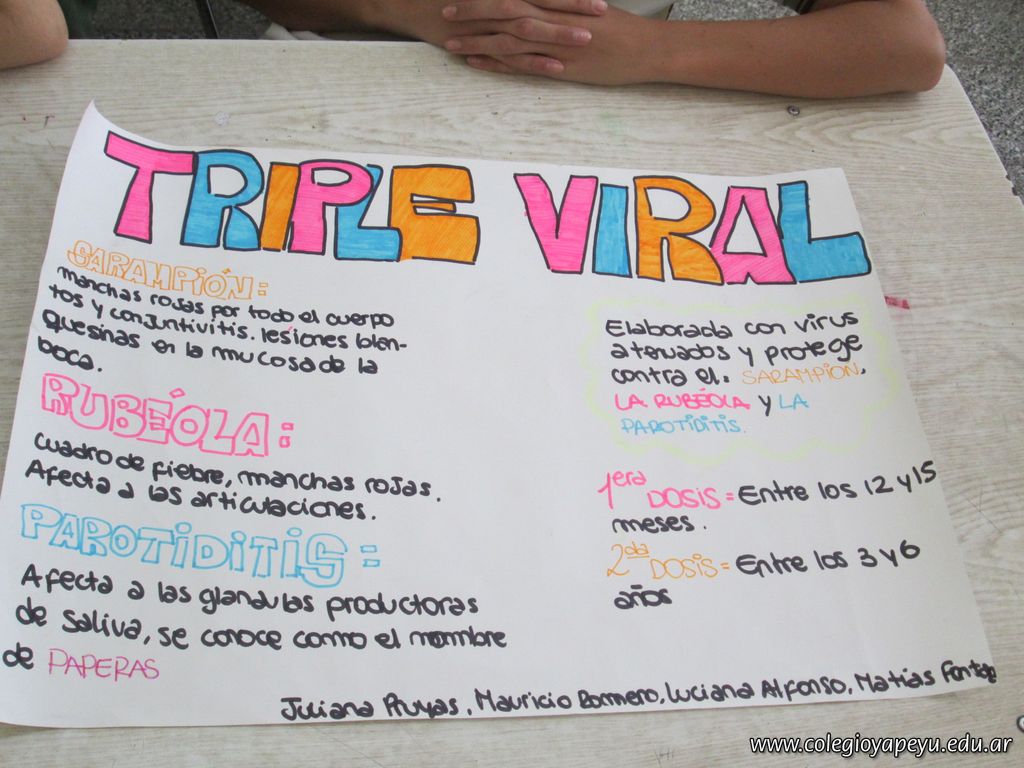 TRIPLE VIRAL
SARAMPIÓN:
manchas rojas por todo el cuerpo
tos y conjuntivitis. lesiones blan-
quesinas en la mucosa de la
boca.
RUBÉOLA:
cuadro de fiebre, manchas rojas.
Afecta a las articulaciones.
PAROTIDITIS:
Afecta a las glandulas productoras
de saliva, se conoce como el nombre
de PAPERAS
Elaborada con virus
atenuados y protege
contra el: SARAMPIÓN,
LA RUBÉOLA y LA
PAROTIDITIS.
1era DOSIS = Entre los 12 y 15
meses.
2da DOSIS = Entre los 3 y 6
años
Juliana Pruyas, Mauricio Romero, Luciana Alfonso, Matías
www.colegioyapeyu.edu.ar